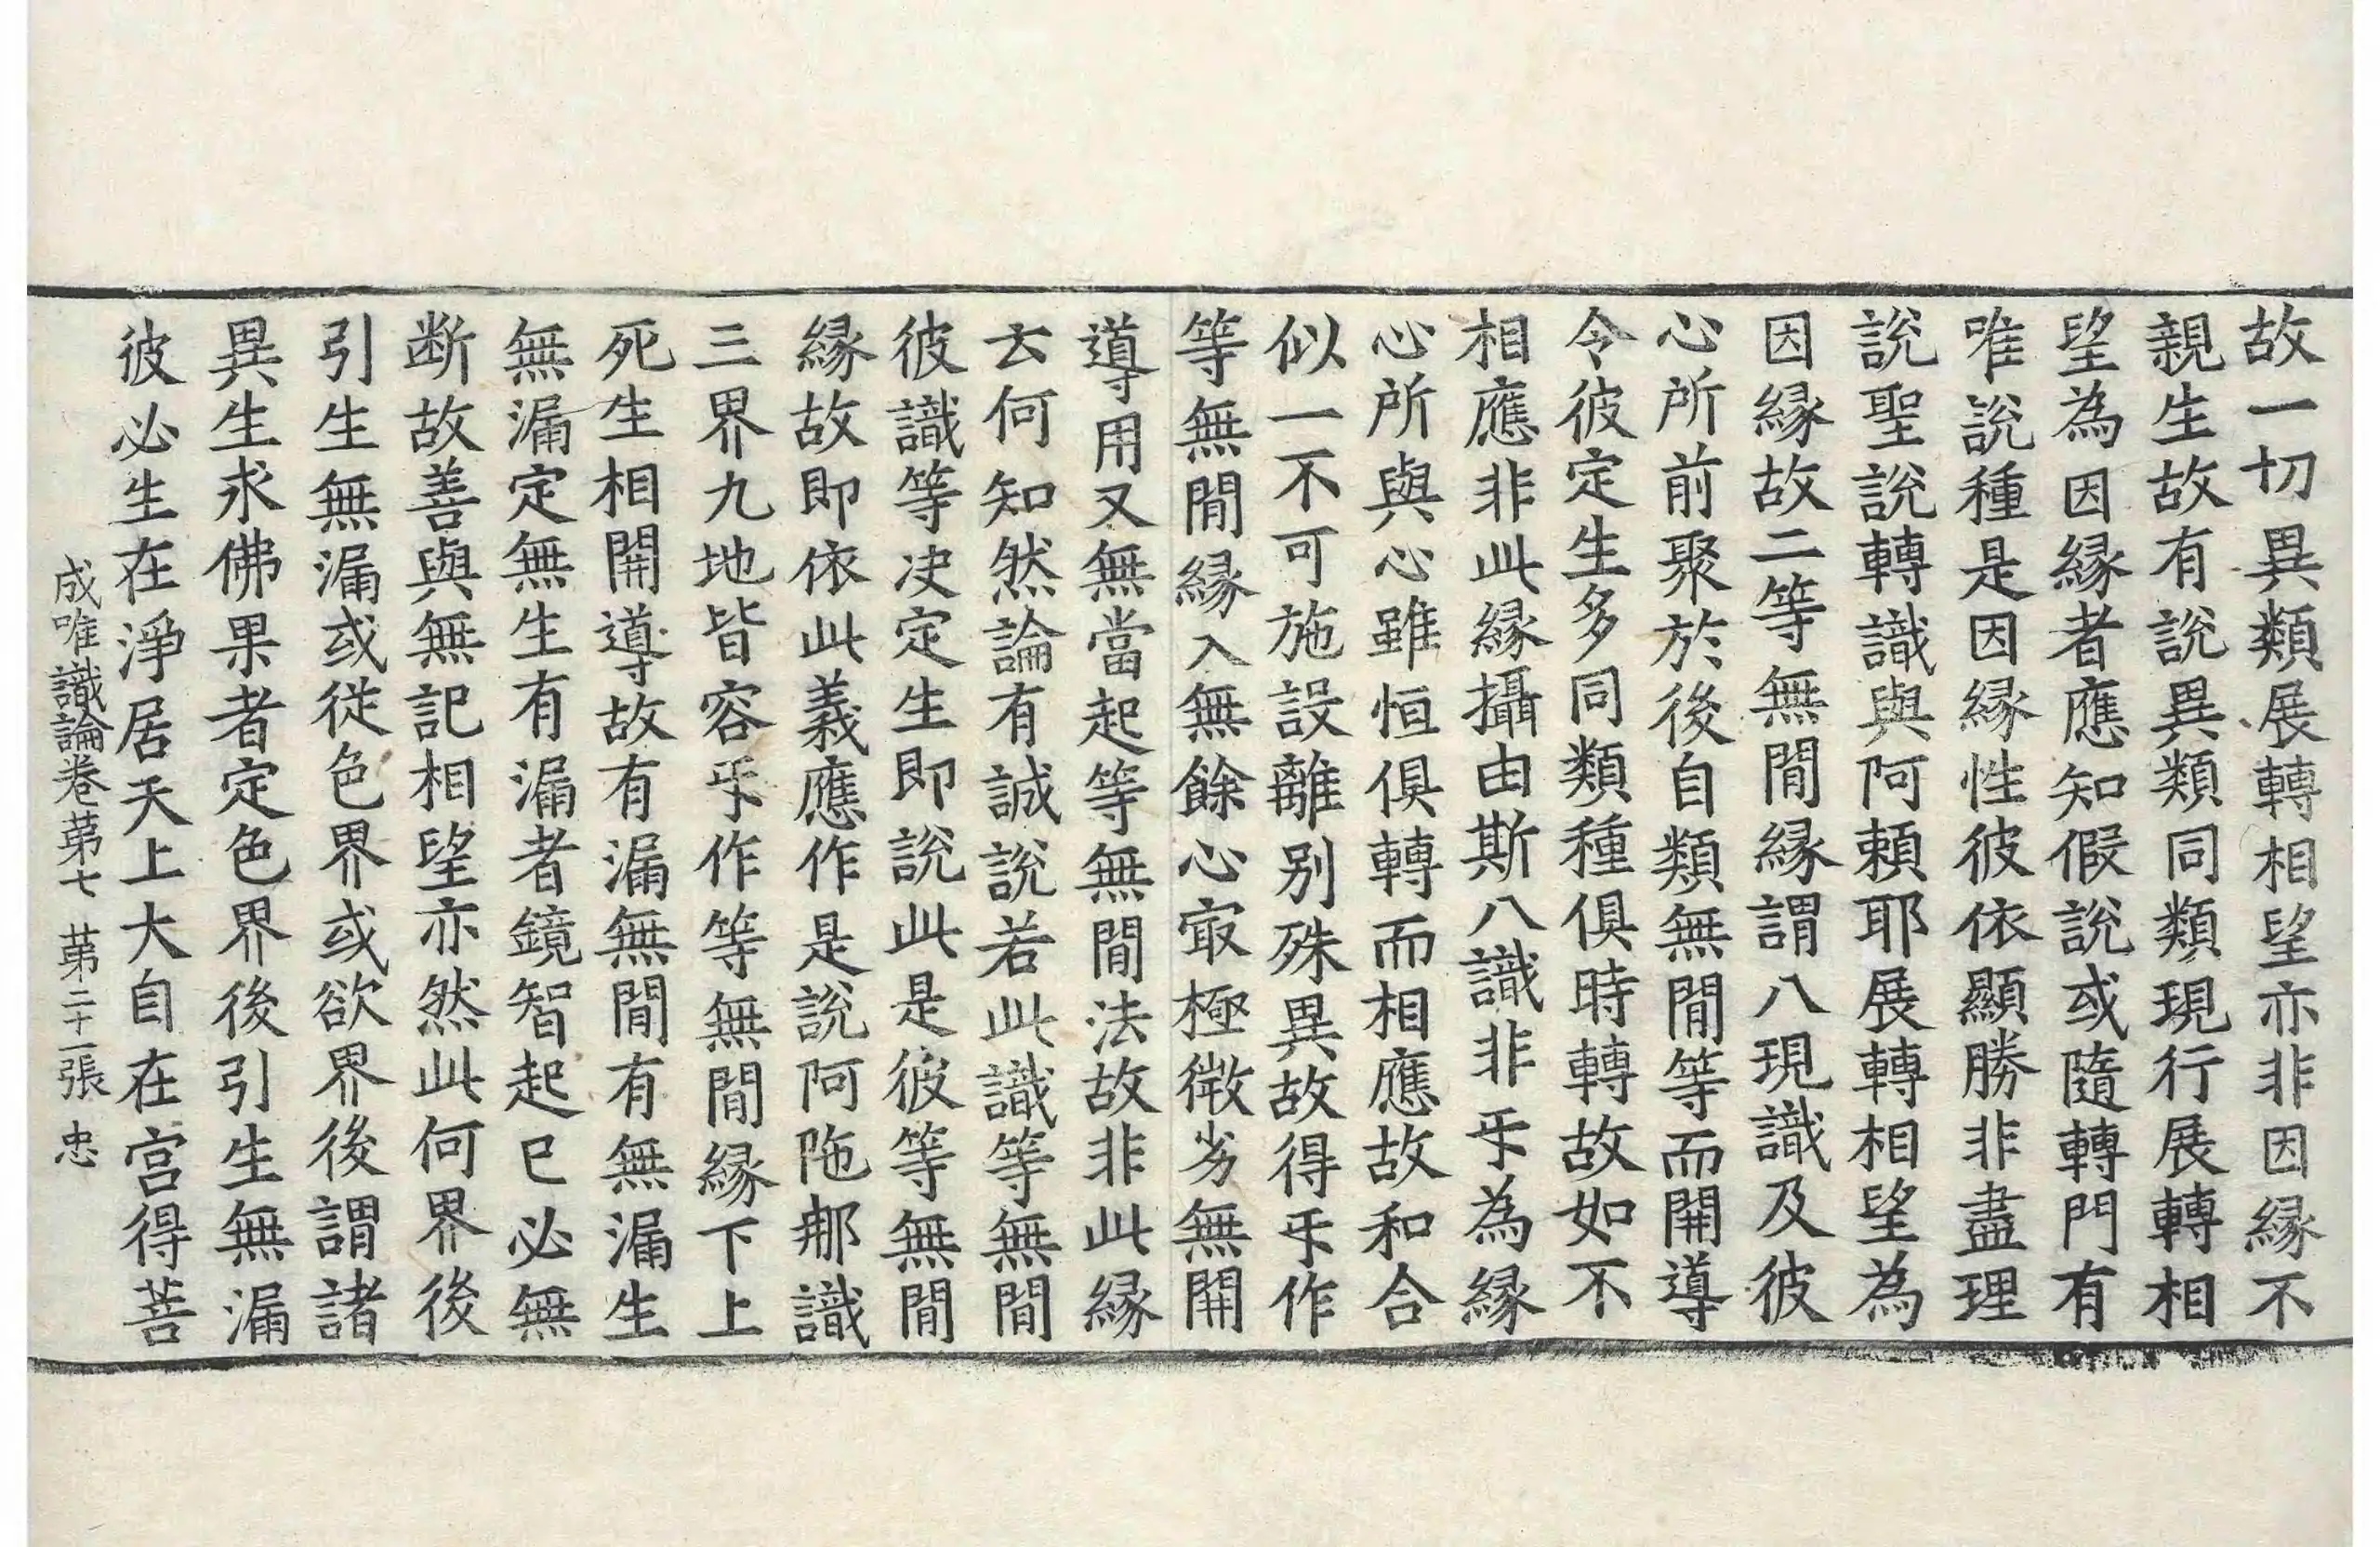 故一切異類展轉相望亦非因縁不
親生故有說異類同類現行展轉相
望為因縁者應知假說或隨轉門有
唯說種是因縁性彼依顯勝非盡理
說聖說轉識與阿頼耶展轉相望為
因縁故二等無間縁謂八現識及彼
心所前聚於後自類無間等而開導
令彼定生多同類種俱時轉故如不
相應非此縁攝由斯八識非㸦為縁
心所與心雖恒俱轉而相應故和合
似一不可施設離别殊異故得㸦作
等無間縁入無餘心㝡極微劣無開
導用又無當起等無間法故非此縁
云何知然論有誠說若此識等無間
彼識等决定生即說此是彼等無間
縁故即依此義應作是說阿陁那識
三界九地皆容㸦作等無間縁下上
死生相開導故有漏無間有無漏生
無漏定無生有漏者鏡智起已必無
断故善與無記相望亦然此何界後
引生無漏或從色界或欲界後謂諸
異生求佛果者定色界後引生無漏
彼必生在淨居天上大自在宫得菩
成唯識論卷苐七 苐二十一張 忠